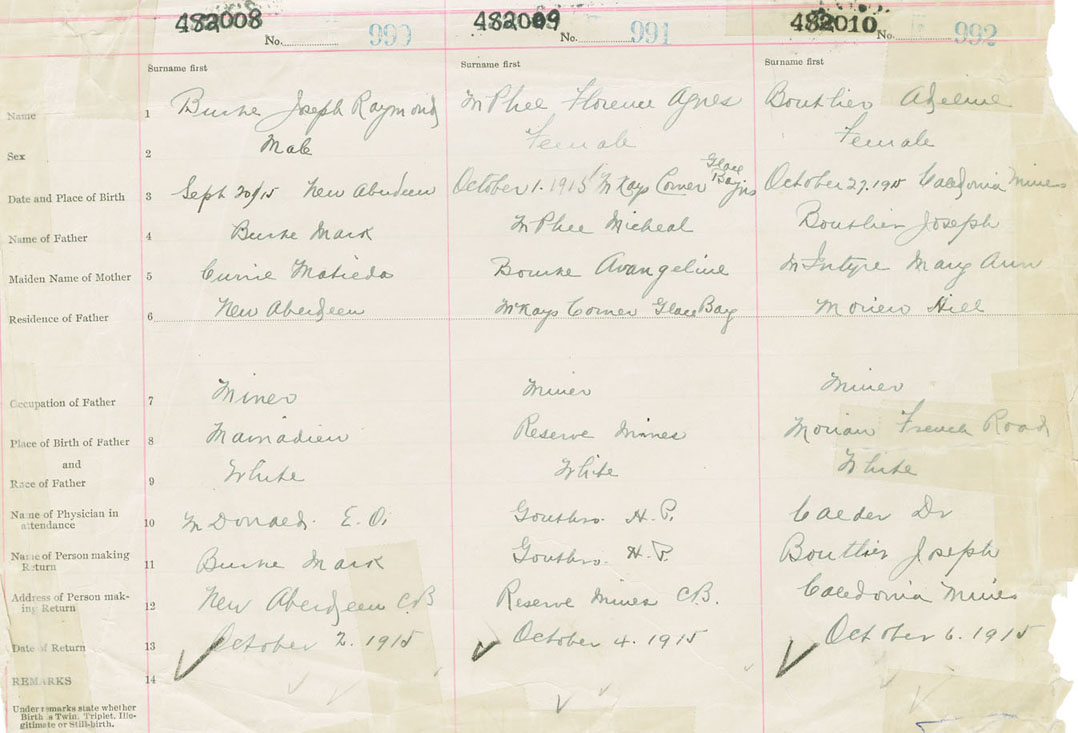 482008 482009 482010
No. 990 No. 991 No. 992
Surname first Surname first Surname first
Name 1 Burke Joseph Raymond McPhee Florence Agnes Boutlier Adeline
Sex 2 Male Female Female
Glace
Bay
Date and Place of Birth 3 Sept 20/15 New Aberdeen October 1. 1915 McKays Corner October 27. 1915 Caledonia Mines
Name of Father 4 Burke Mark McPhee Micheal Boutlier Joseph
Maiden Name of Mother 5 Currie Matilda Bourke Avangeline McIntyre Mary Ann
Residence of Father 6 New Aberdeen McKays Corner Glace Bay Morien Hill
Occupation of Father 7 Miner Miner Miner
Place of Birth of Father 8 Mainadieu Reserve Mines Morian French Road
and
Race of Father 9 White White White
Name of Physician in
attendance 10 McDonald. E. O. Gouthro. H. P. Calder Dr
Name of Person making
Return 11 Burke Mark Gouthro. H. P. Boutlier Joseph
Address of Person mak-
ing Return 12 New Aberdeen C.B Reserve Mines C.B. Caledonia Mines
Date of Return 13 October 2. 1915 October 4. 1915 October 6. 1915
REMARKS 14
Under remarks state whether
Birth is Twin, Triplet, Ille-
gitimate or Still-birth.